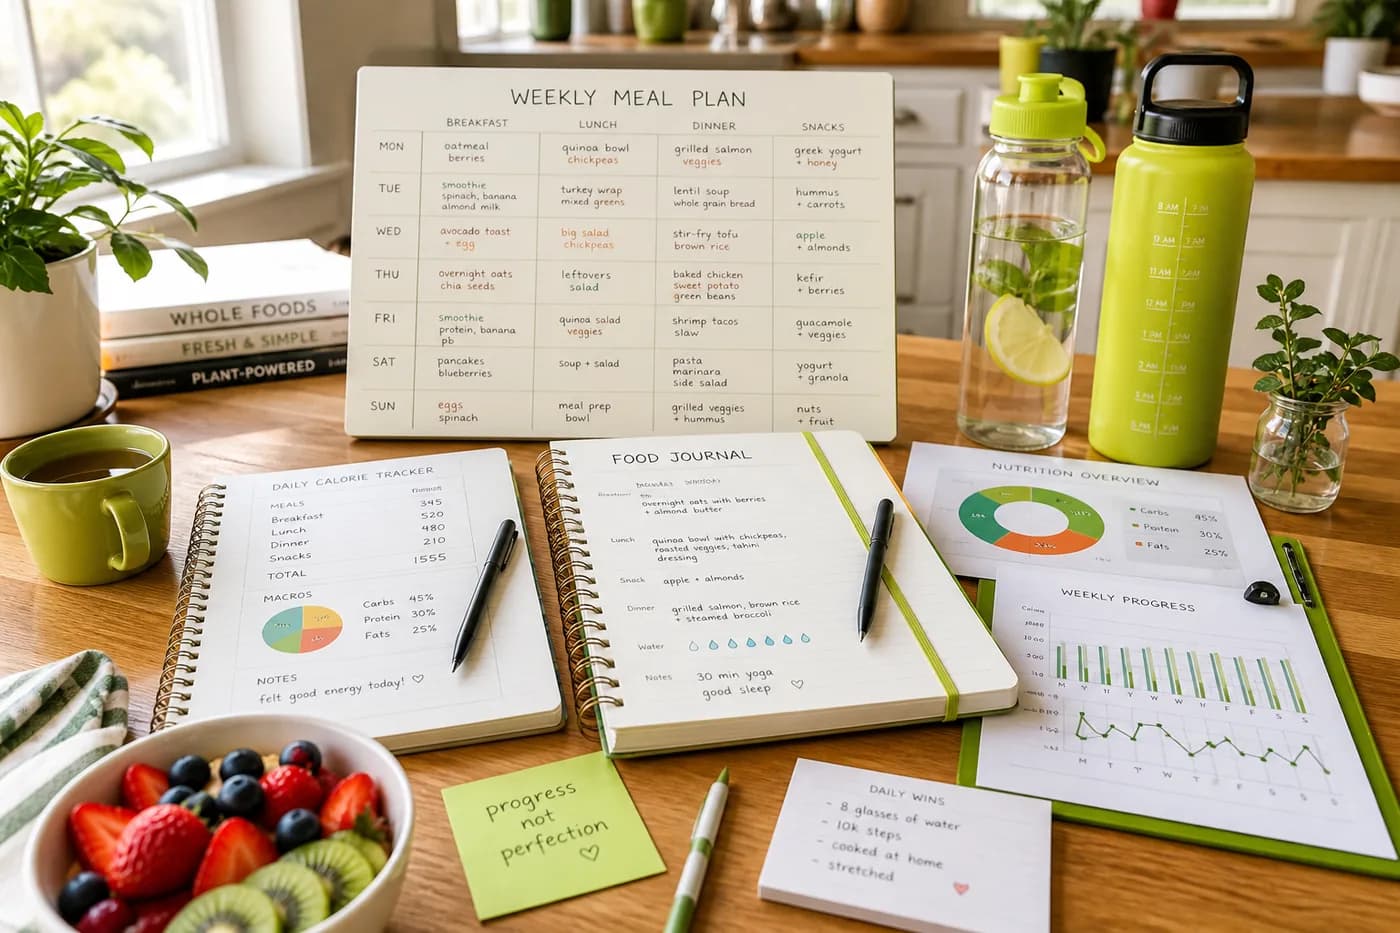 WEEKLY MEAL PLAN
BREAKFAST LUNCH DINNER SNACKS
MON
oatmeal
berries
quinoa bowl
chickpeas
grilled salmon
veggies
greek yogurt
+ honey
TUE
smoothie
spinach, banana
almond milk
turkey wrap
mixed greens
lentil soup
whole grain bread
hummus
+ carrots
WED
avocado toast
+ egg
big salad
chickpeas
stir-fry tofu
brown rice
apple
+ almonds
THU
overnight oats
chia seeds
leftovers
salad
baked chicken
sweet potato
green beans
kefir
+ berries
FRI
smoothie
protein, banana
pb
quinoa salad
veggies
shrimp tacos
slaw
guacamole
+ veggies
SAT
pancakes
blueberries
soup + salad
pasta
marinara
side salad
yogurt
+ granola
SUN
eggs
spinach
meal prep
bowl
grilled veggies
+ hummus
nuts
+ fruit
WHOLE FOODS
FRESH & SIMPLE
PLANT-POWERED
8 AM
11 AM
12 AM
DAILY CALORIE TRACKER
MEALS 345
Breakfast 520
Lunch 480
Dinner 210
Snacks 1555
TOTAL
MACROS
Carbs 45%
Protein 30%
Fats 25%
NOTES
felt good energy today! ♡
FOOD JOURNAL
overnight oats with berries
+ almond butter
Lunch quinoa bowl with chickpeas,
roasted veggies, tahini
dressing
Snack apple + almonds
Dinner grilled salmon, brown rice
+ steamed broccoli
Water
Notes 30 min yoga
good sleep ♡
NUTRITION OVERVIEW
Carbs 45%
Protein 30%
Fats 25%
WEEKLY PROGRESS
M Y Y Y W W F F S S
M T T W T F S S S
progress
not
perfection
♡
DAILY WINS
- 8 glasses of water
- 10k steps
- cooked at home
- stretched